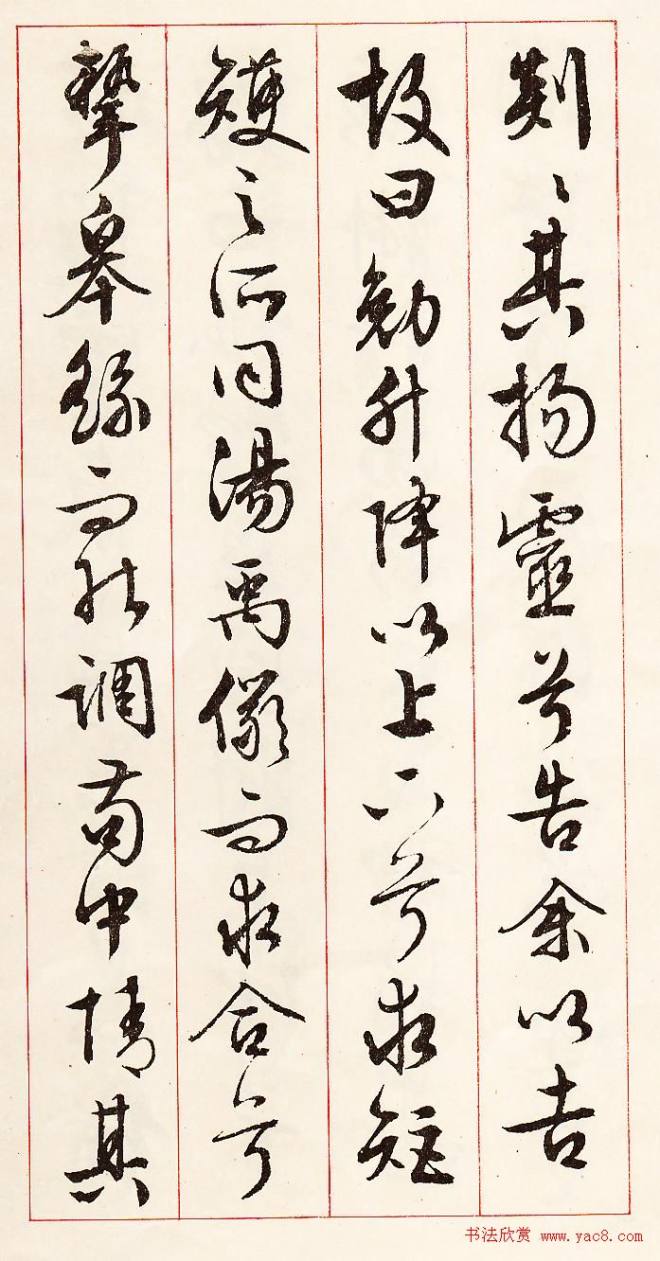 剡〻其揚靈兮告余以吉
故曰勉升降以上下兮求矩
矱之所同湯禹儼而求合兮
摯皋繇而能調苟中情其
书法欣赏 www.yac8.com